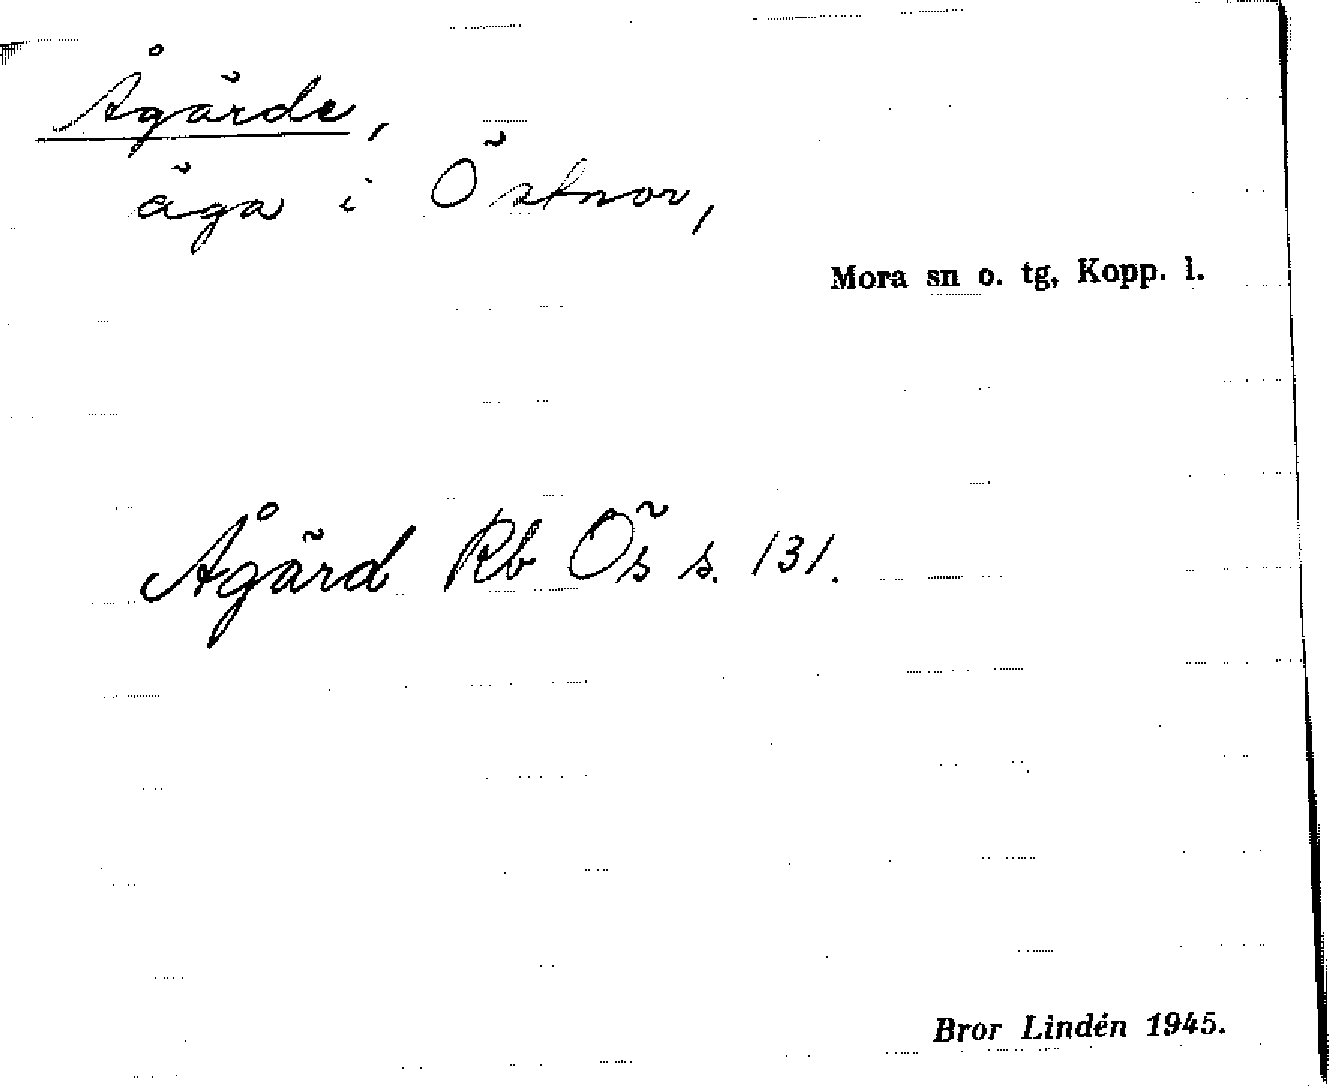 Ågärde,
äga i Östnor,
Mora sn o. tg, Kopp. l.
Ågärd Rb Ös s. 131.
Bror Lindén 1945.